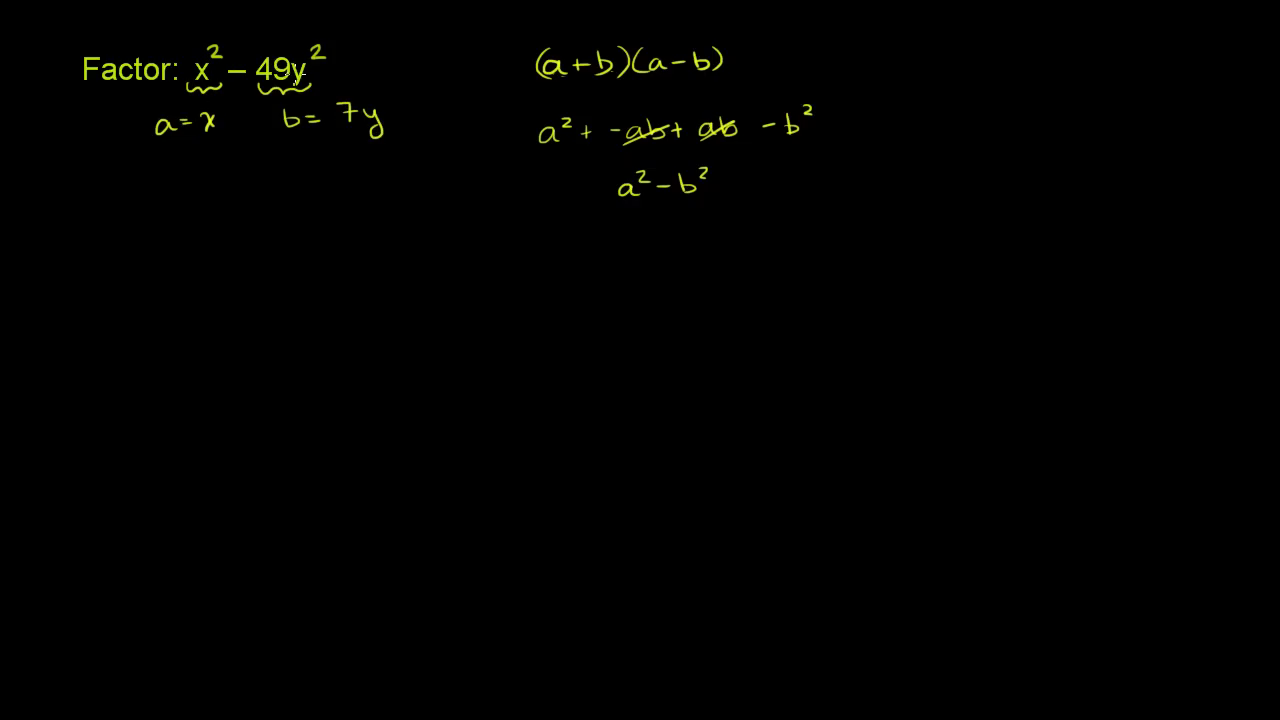 Factor: x² – 49y²
a = x b = 7y
(a+b)(a-b)
a² + -ab + ab - b²
a² - b²